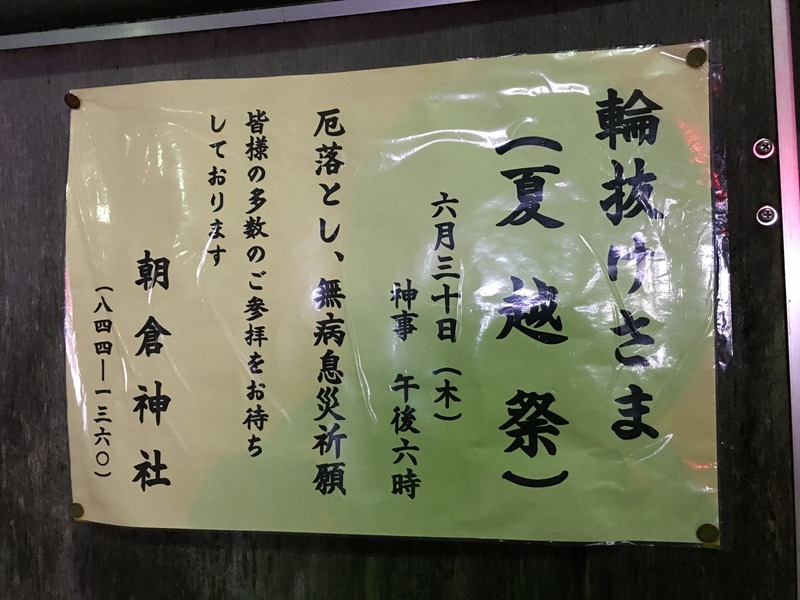 輪抜けさま
（夏越祭）
六月三十日（木）
神事 午後六時
厄落とし、無病息災祈願
皆様の多数のご参拝をお待ち
しております
朝倉神社
（八四四―一三六〇）